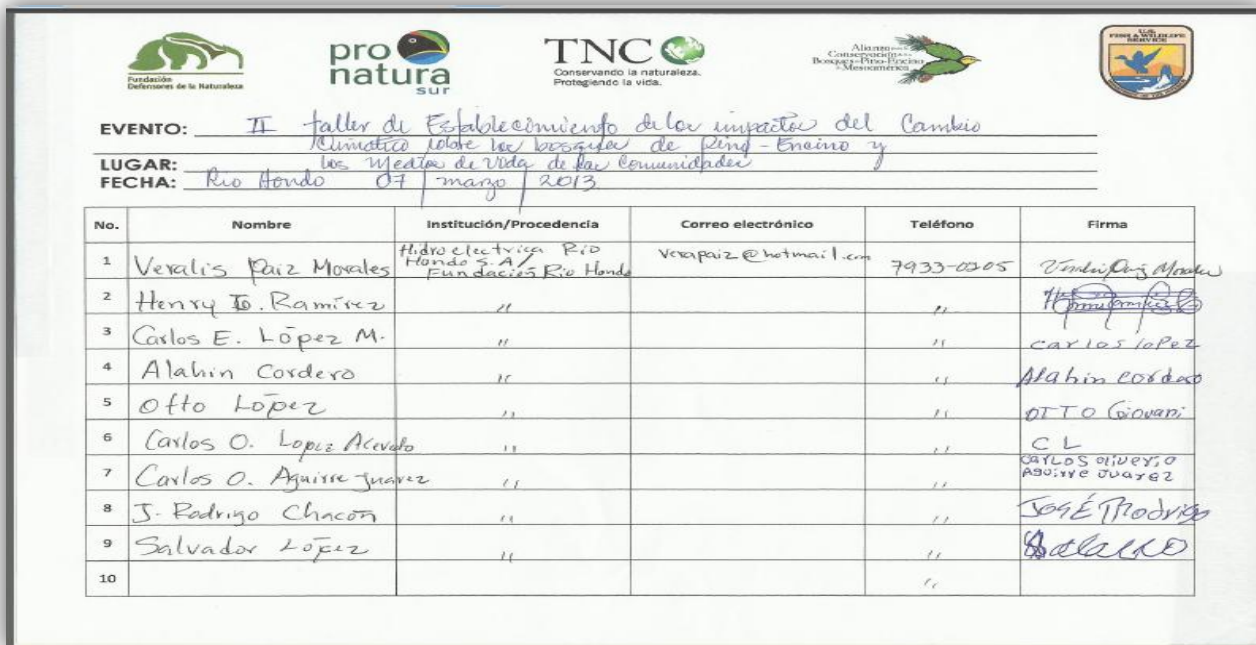 Fundación
Defensores de la Naturaleza
pro
natura
sur
TNC
Conservando la naturaleza.
Protegiendo la vida.
Alianza para la
Conservación de los
Bosques de Pino-Encino
de Mesoamérica
U.S.
FISH & WILDLIFE
SERVICE
EVENTO: II taller de Establecimiento de los impactos del Cambio
Climatico sobre los bosques de Pino-Encino y
LUGAR: los Medios de Vida de las Comunidades
FECHA: Rio Hondo 07 / marzo / 2013
No. Nombre Institución/Procedencia Correo electrónico Teléfono Firma
1 Veralis Paiz Morales Hidroelectrica Rio Hondo S.A / Fundación Rio Hondo verapaiz@hotmail.com 7933-0205 Paiz Morales
2 Henry D. Ramírez " "
3 Carlos E. López M. " " carlos loPez
4 Alahin Cordero " " Alahin cordero
5 Otto López " " OTTO Giovani
6 Carlos O. Lopez Acevedo " " C L
7 Carlos O. Aguirre Juarez " " CarLOS oliverio Aguirre Juarez
8 J. Rodrigo Chacón " " JOSÉ Rodrigo
9 Salvador López " "
10 "